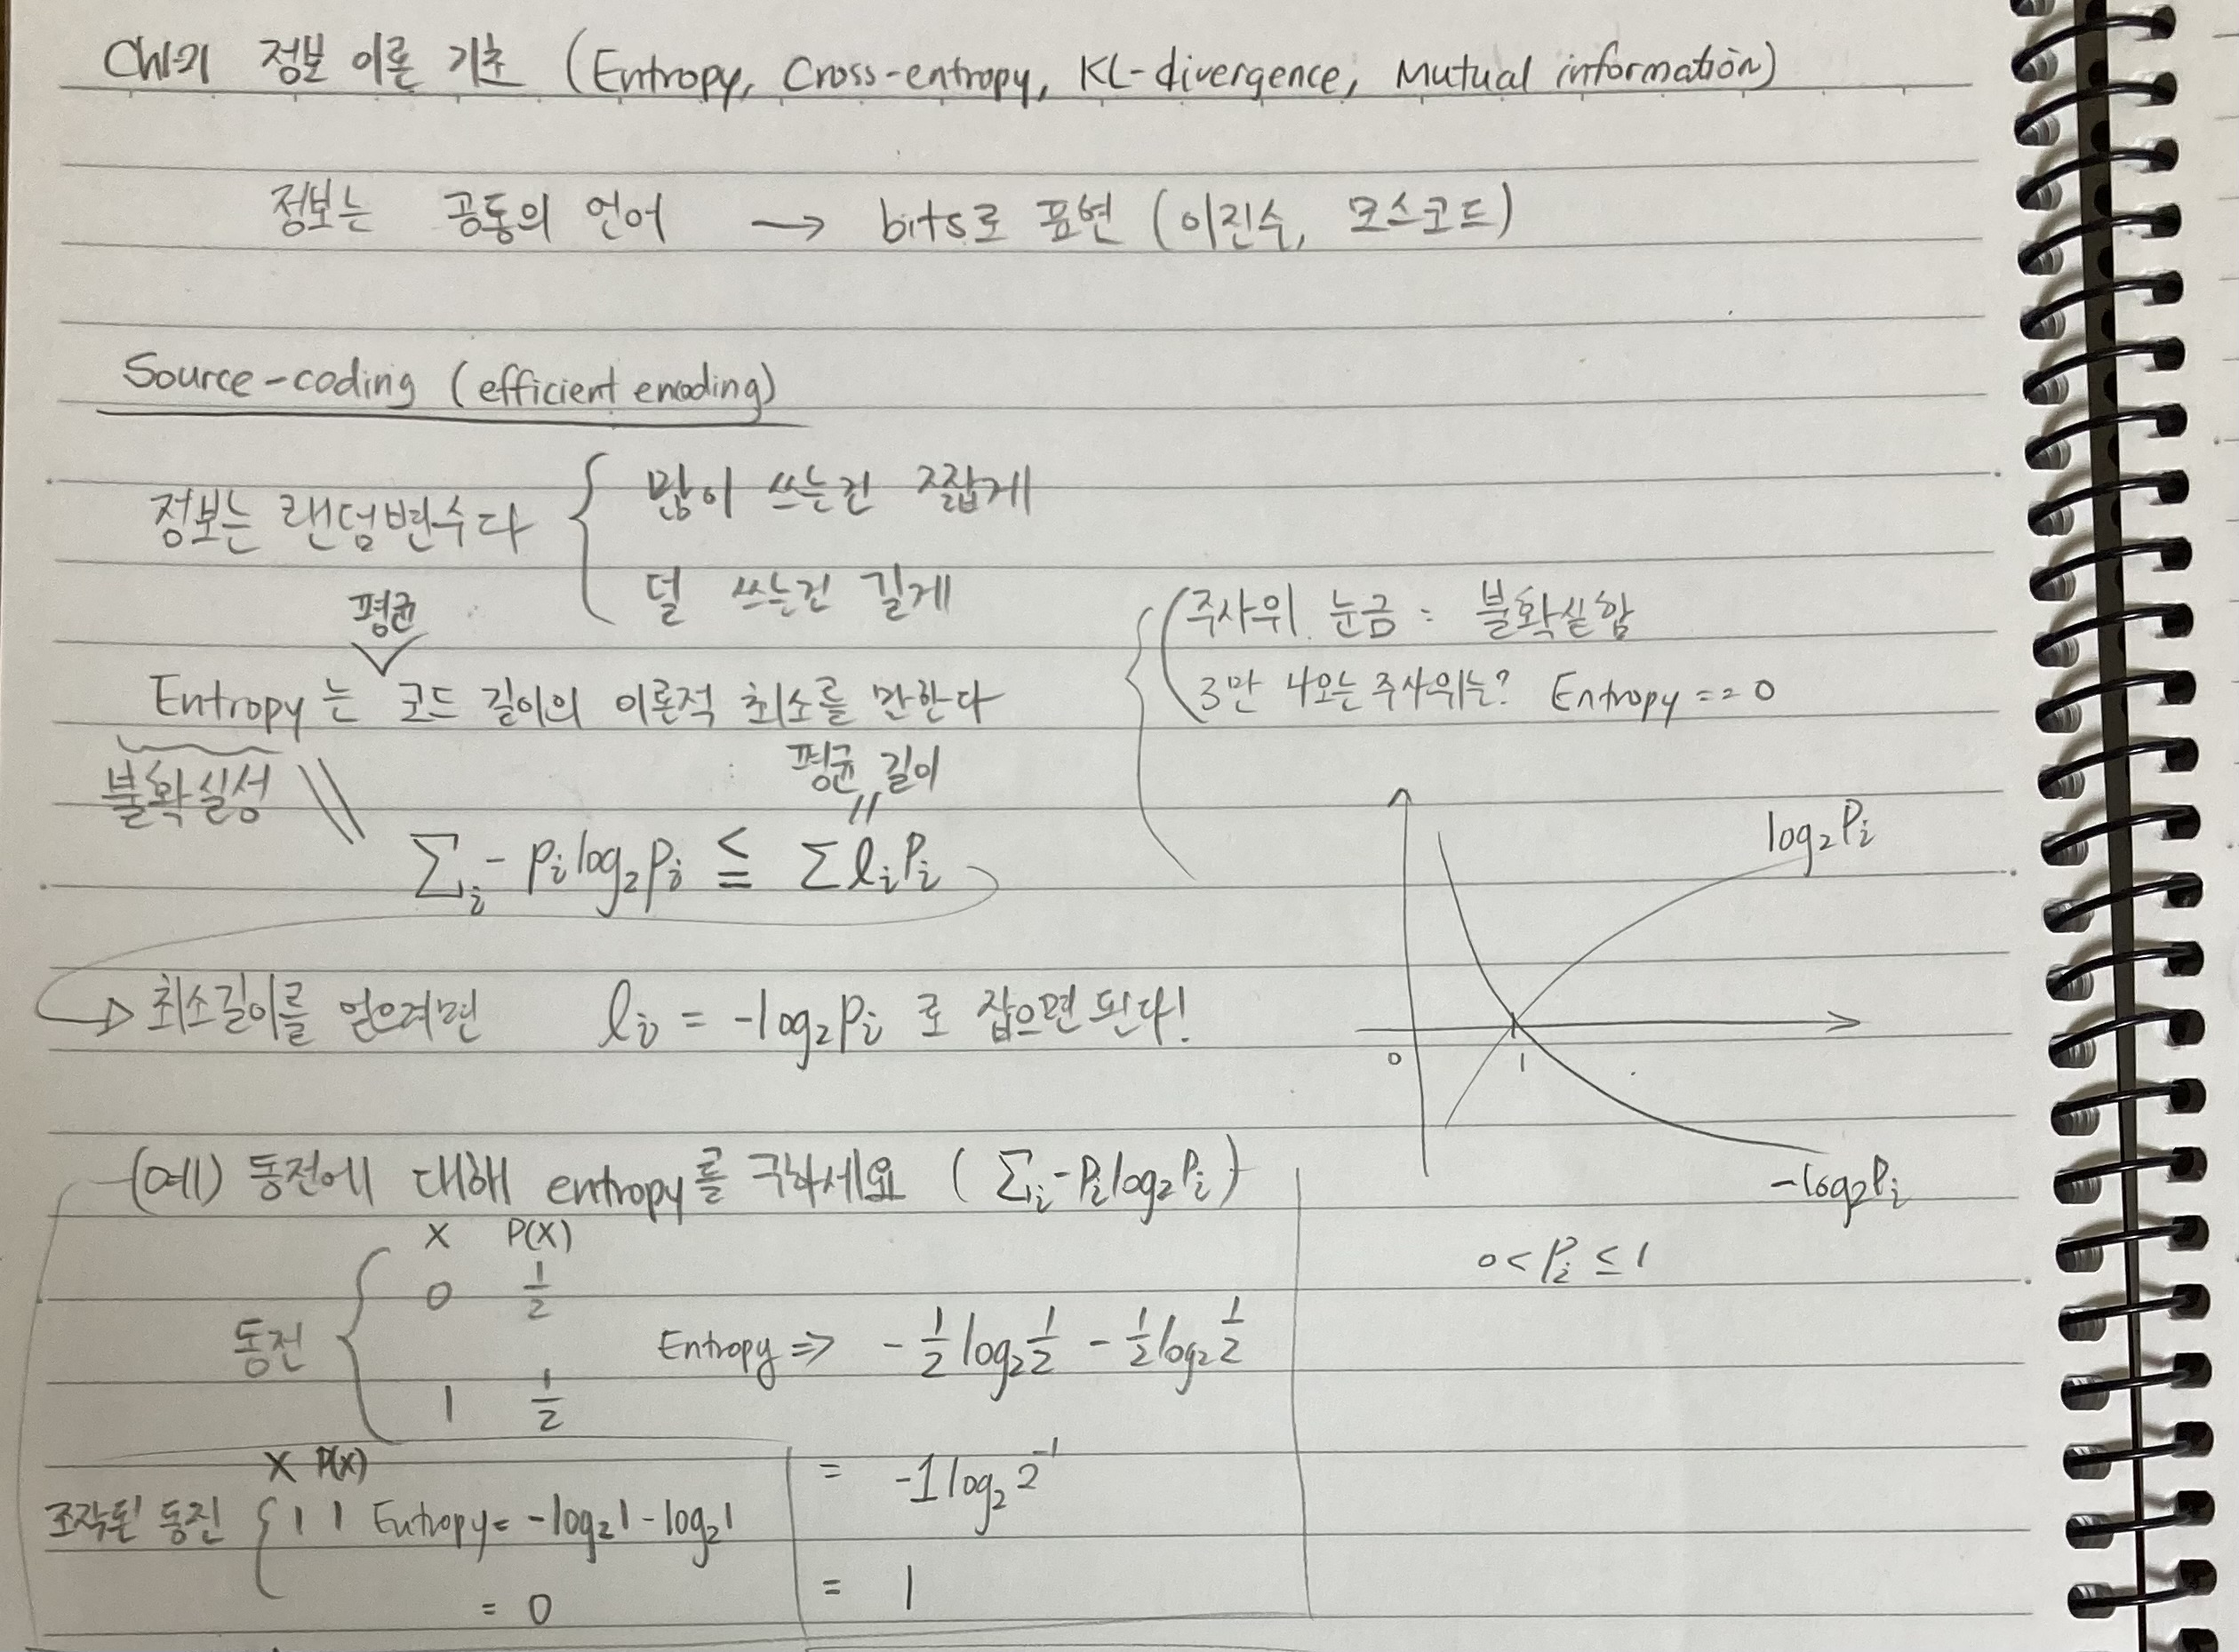 정보 이론 기초 (Entropy, Cross-entropy, KL-divergence, Mutual information)
정보는 공통의 언어 → bits로 표현 (이진수, 모스코드)
Source-coding (efficient enoding)
정보는 랜덤변수다 { 많이 쓰는건 짧게
덜 쓰는건 길게
평균
Entropy는 코드 길이의 이론적 최소를 말한다
불확실성
평균 길이
∑i - pi log2 pi ≤ ∑ li Pi
주사위 눈금 : 불확실함
3만 나오는 주사위는? Entropy == 0
log2 Pi
0 1
-log2 Pi
0 < Pi ≤ 1
→ 최소길이를 얻으려면 li = -log2 pi 로 잡으면 된다!
(예) 동전에 대해 entropy를 구하세요 (∑i - Pi log2 Pi)
X P(X)
0 1/2
동전 {
1 1/2
Entropy ⇒ - 1/2 log2 1/2 - 1/2 log2 1/2
= -1 log2 2^-1
= 1
X P(X)
조작된 동전 { 1 1 Entropy = -log2 1 - log2 1
= 0